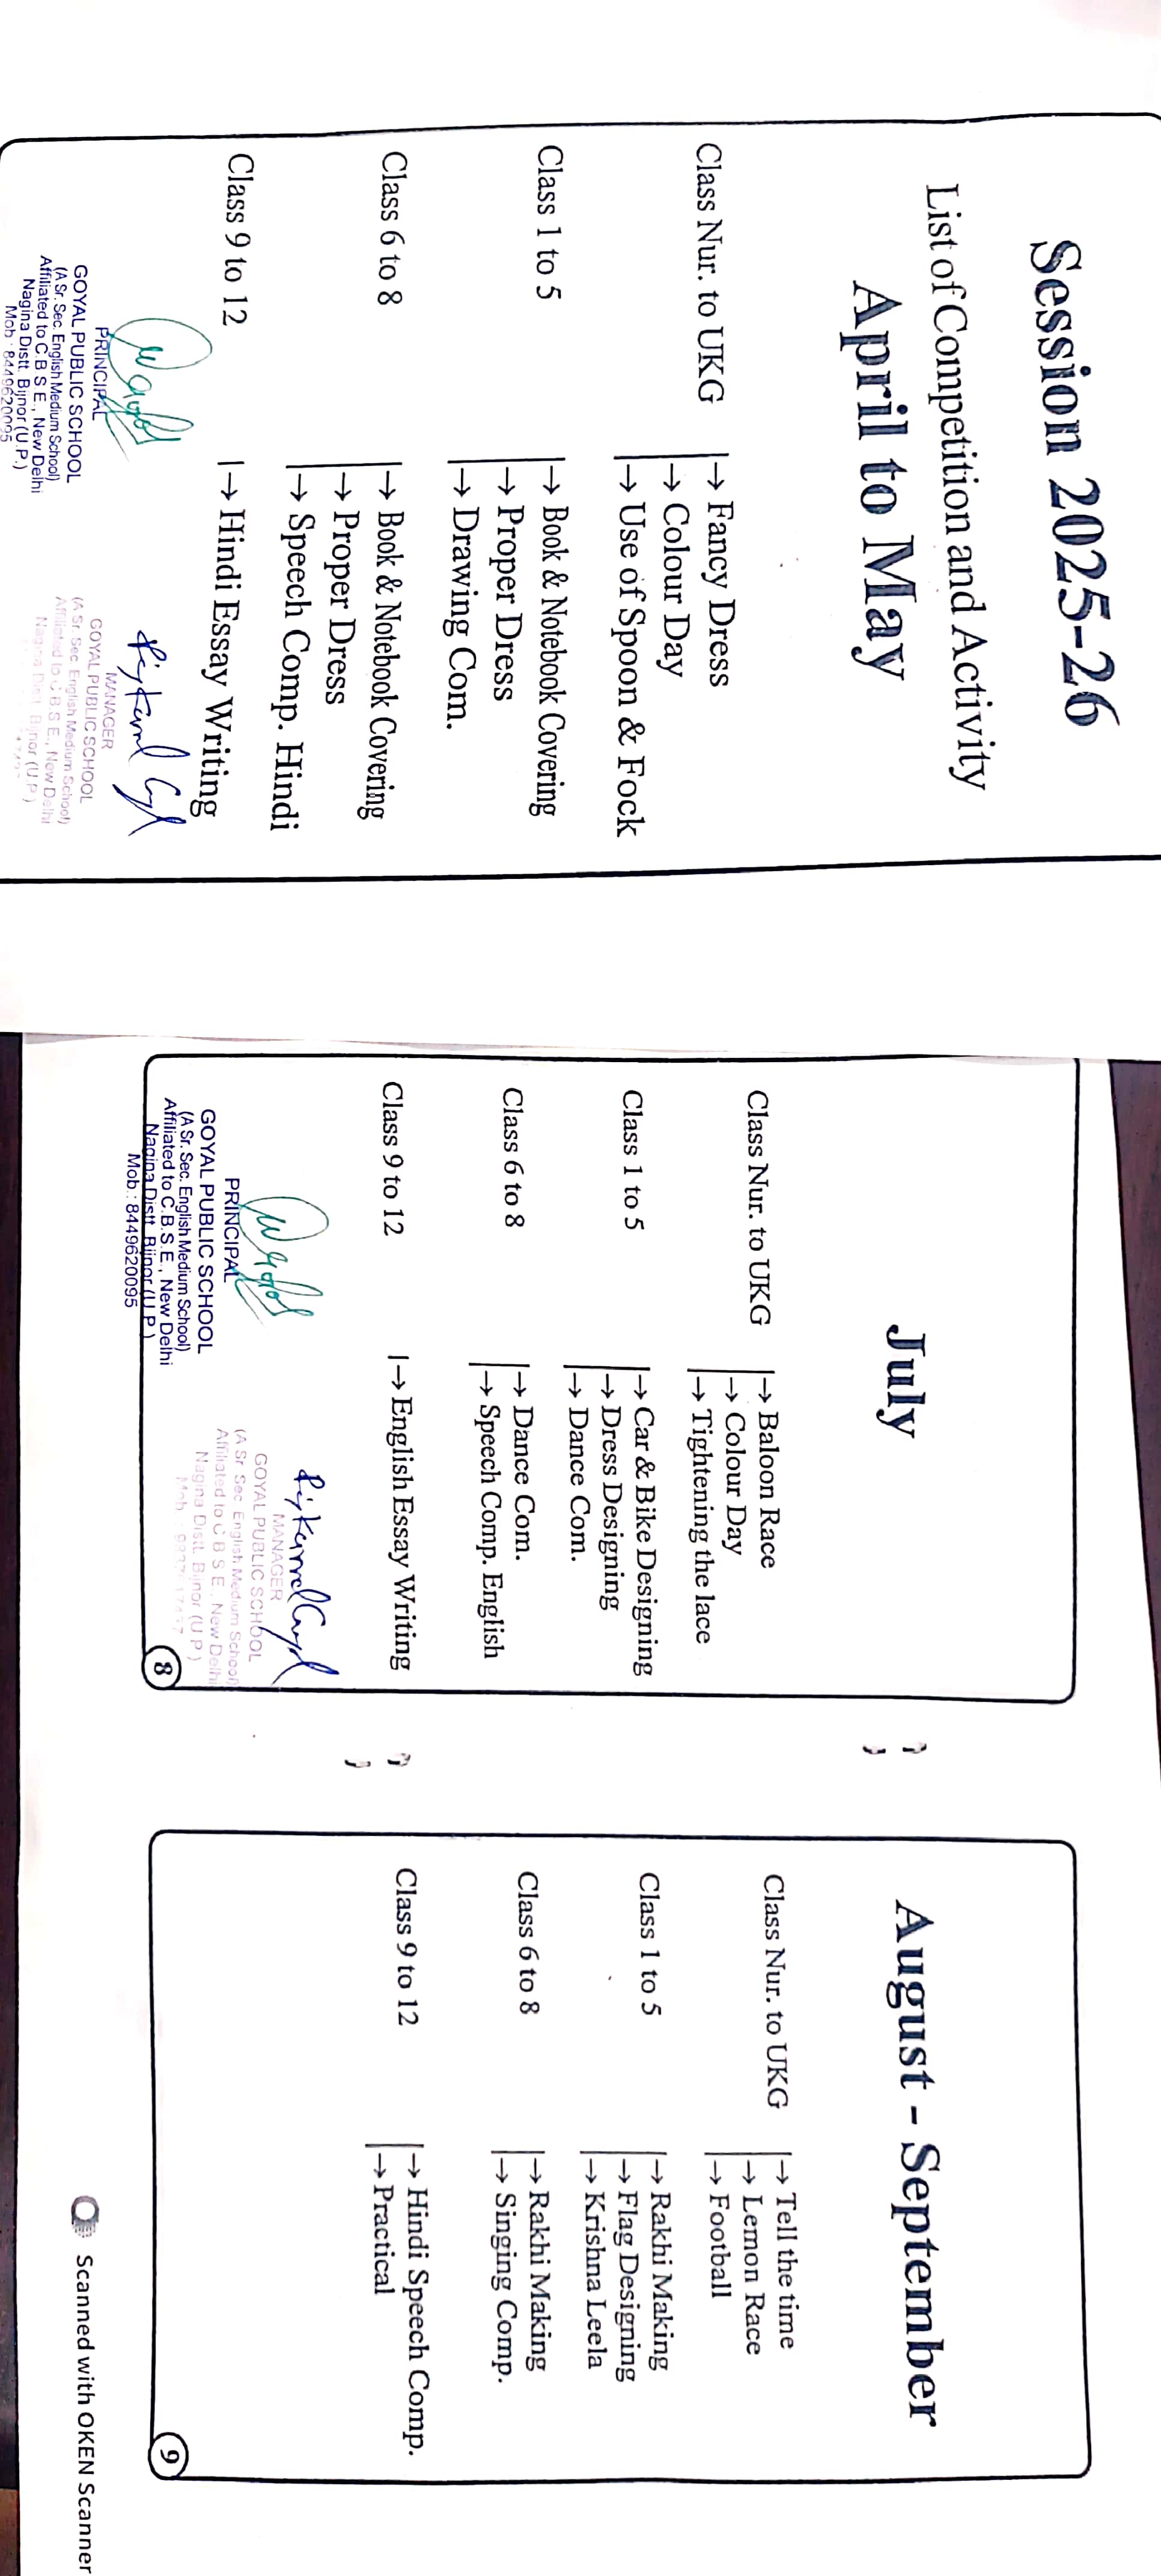 Session 2025-26
List of Competition and Activity
April to May
Class Nur. to UKG
→ Fancy Dress
→ Colour Day
→ Use of Spoon & Fock
Class 1 to 5
→ Book & Notebook Covering
→ Proper Dress
→ Drawing Com.
Class 6 to 8
→ Book & Notebook Covering
→ Proper Dress
→ Speech Comp. Hindi
Class 9 to 12
→ Hindi Essay Writing
PRINCIPAL
GOYAL PUBLIC SCHOOL
(A Sr. Sec. English Medium School)
Affiliated to C.B.S.E., New Delhi
Nagina Distt. Bijnor (U.P.)
Mob.: 8449620095
MANAGER
GOYAL PUBLIC SCHOOL
(A Sr. Sec. English Medium School)
Affiliated to C.B.S.E., New Delhi
Nagina Distt. Bijnor (U.P.)
July
Class Nur. to UKG
→ Baloon Race
→ Colour Day
→ Tightening the lace
Class 1 to 5
→ Car & Bike Designing
→ Dress Designing
→ Dance Com.
Class 6 to 8
→ Dance Com.
→ Speech Comp. English
Class 9 to 12
→ English Essay Writing
PRINCIPAL
GOYAL PUBLIC SCHOOL
(A Sr. Sec. English Medium School)
Affiliated to C.B.S.E., New Delhi
Nagina Distt. Bijnor (U.P.)
Mob.: 8449620095
MANAGER
GOYAL PUBLIC SCHOOL
(A Sr. Sec. English Medium School)
Affiliated to C.B.S.E., New Delhi
Nagina Distt. Bijnor (U.P.)
Mob.:
8
August - September
Class Nur. to UKG
→ Tell the time
→ Lemon Race
→ Football
Class 1 to 5
→ Rakhi Making
→ Flag Designing
→ Krishna Leela
Class 6 to 8
→ Rakhi Making
→ Singing Comp.
Class 9 to 12
→ Hindi Speech Comp.
→ Practical
9
Scanned with OKEN Scanner